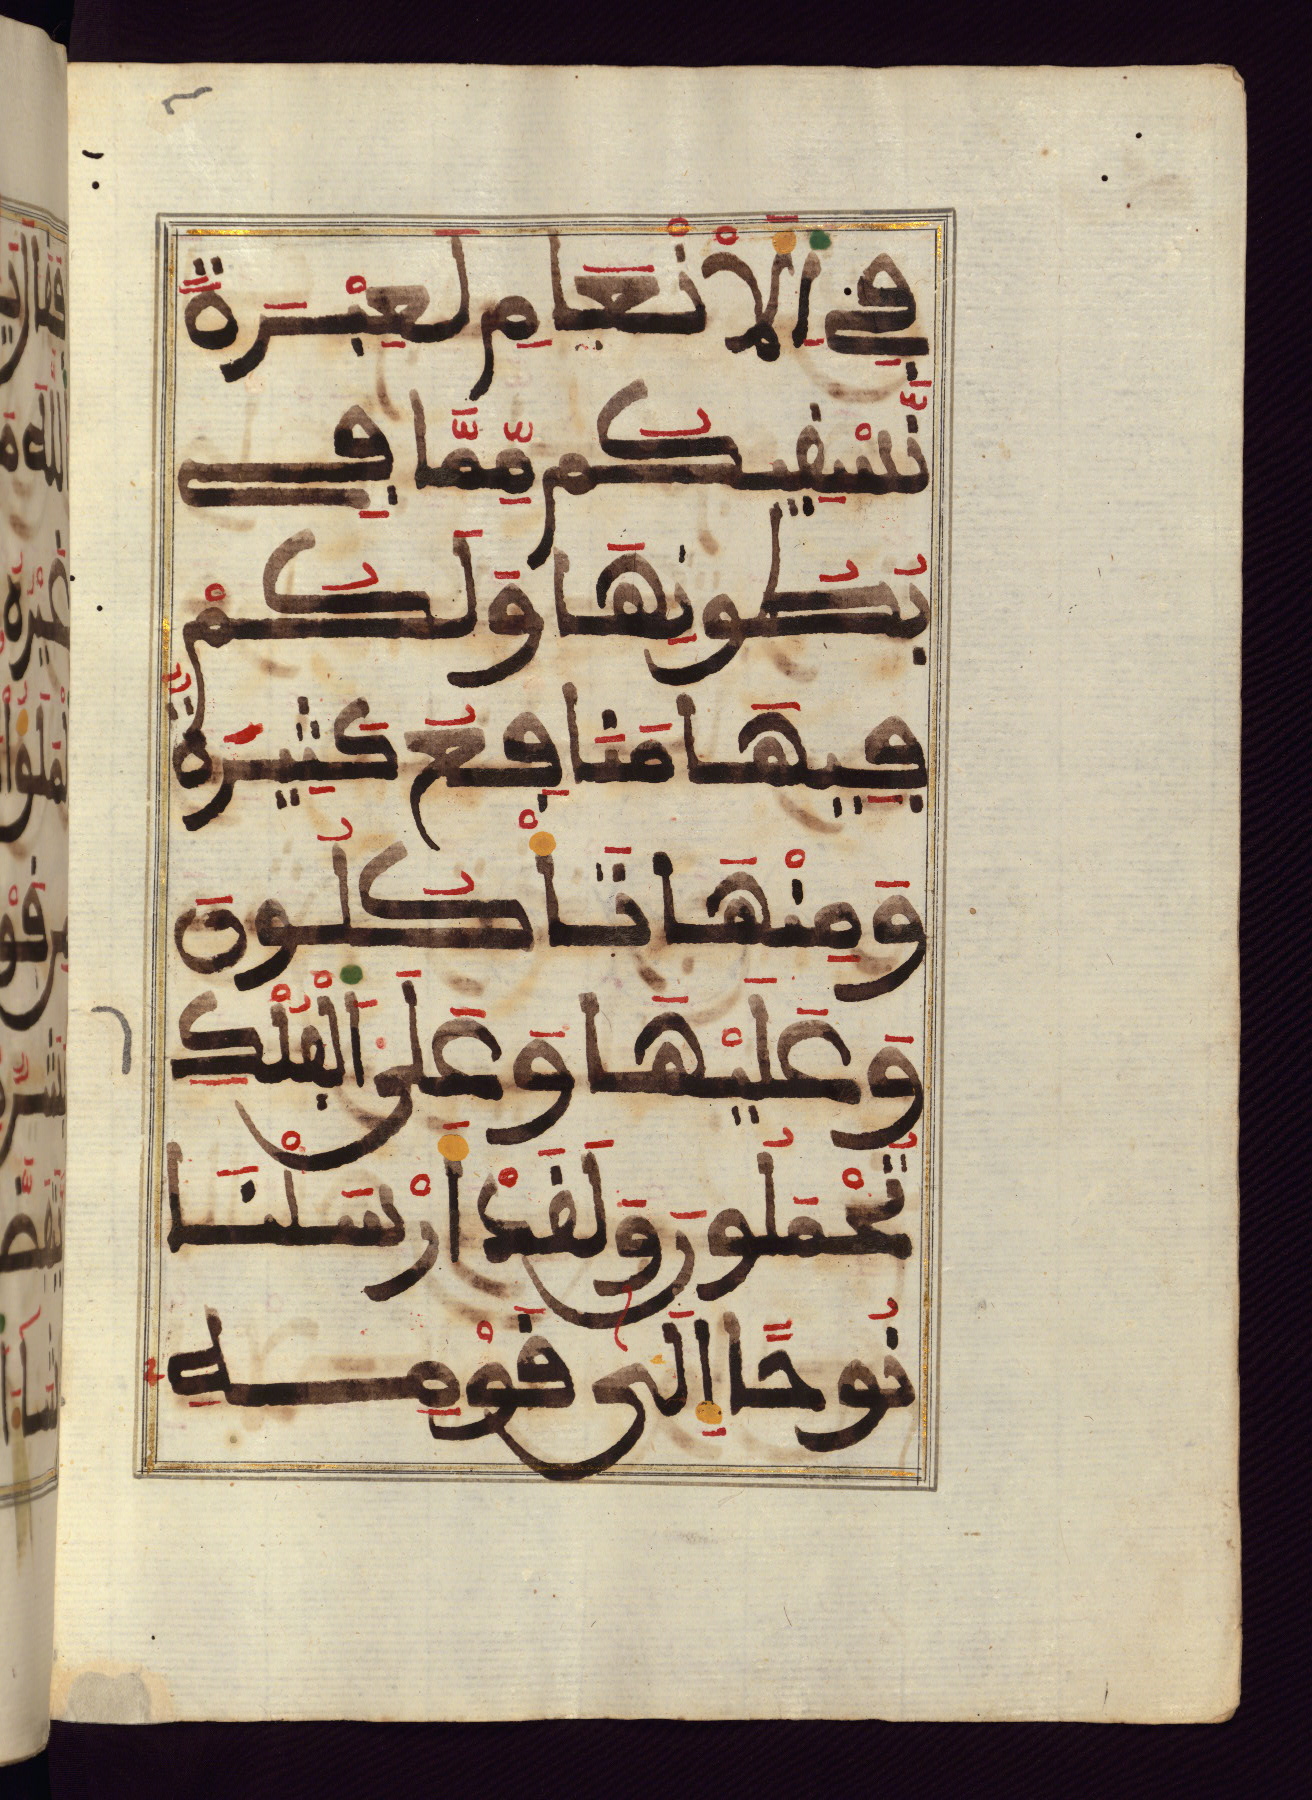 فِي اَلَانْعَامِ لَعِبْرَةً
نُّسْقِيكُم مِّمَّا فِي
بُطُونِهَا وَلَكُمْ
فِيهَا مَنَافِعُ كَثِيرَةٌ
وَمِنْهَا تَاْكُلُونَ
وَعَلَيْهَا وَعَلَى اَلْفُلْكِ
تُحْمَلُونَ وَلَقَدْ اَرْسَلْنَا
نُوحًا اِلَىٰ قَوْمِهِ